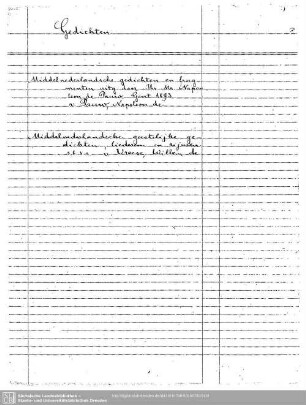 Gedichten 2
Middelnederlandsche gedichten en frag-
menten uitg door Jhr Mr Napo-
leon de Pauw Gent 1893
v Pauw, Napoleon de
Middelnederlandsche geestelijke ge-
dichten, liederen en rijmen
v Vreese, Willem de
Sächsische Landesbibliothek -
Staats- und Universitätsbibliothek Dresden